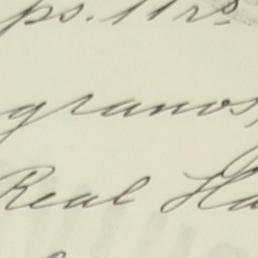 ps. 11rs.
granos,
Real Ha